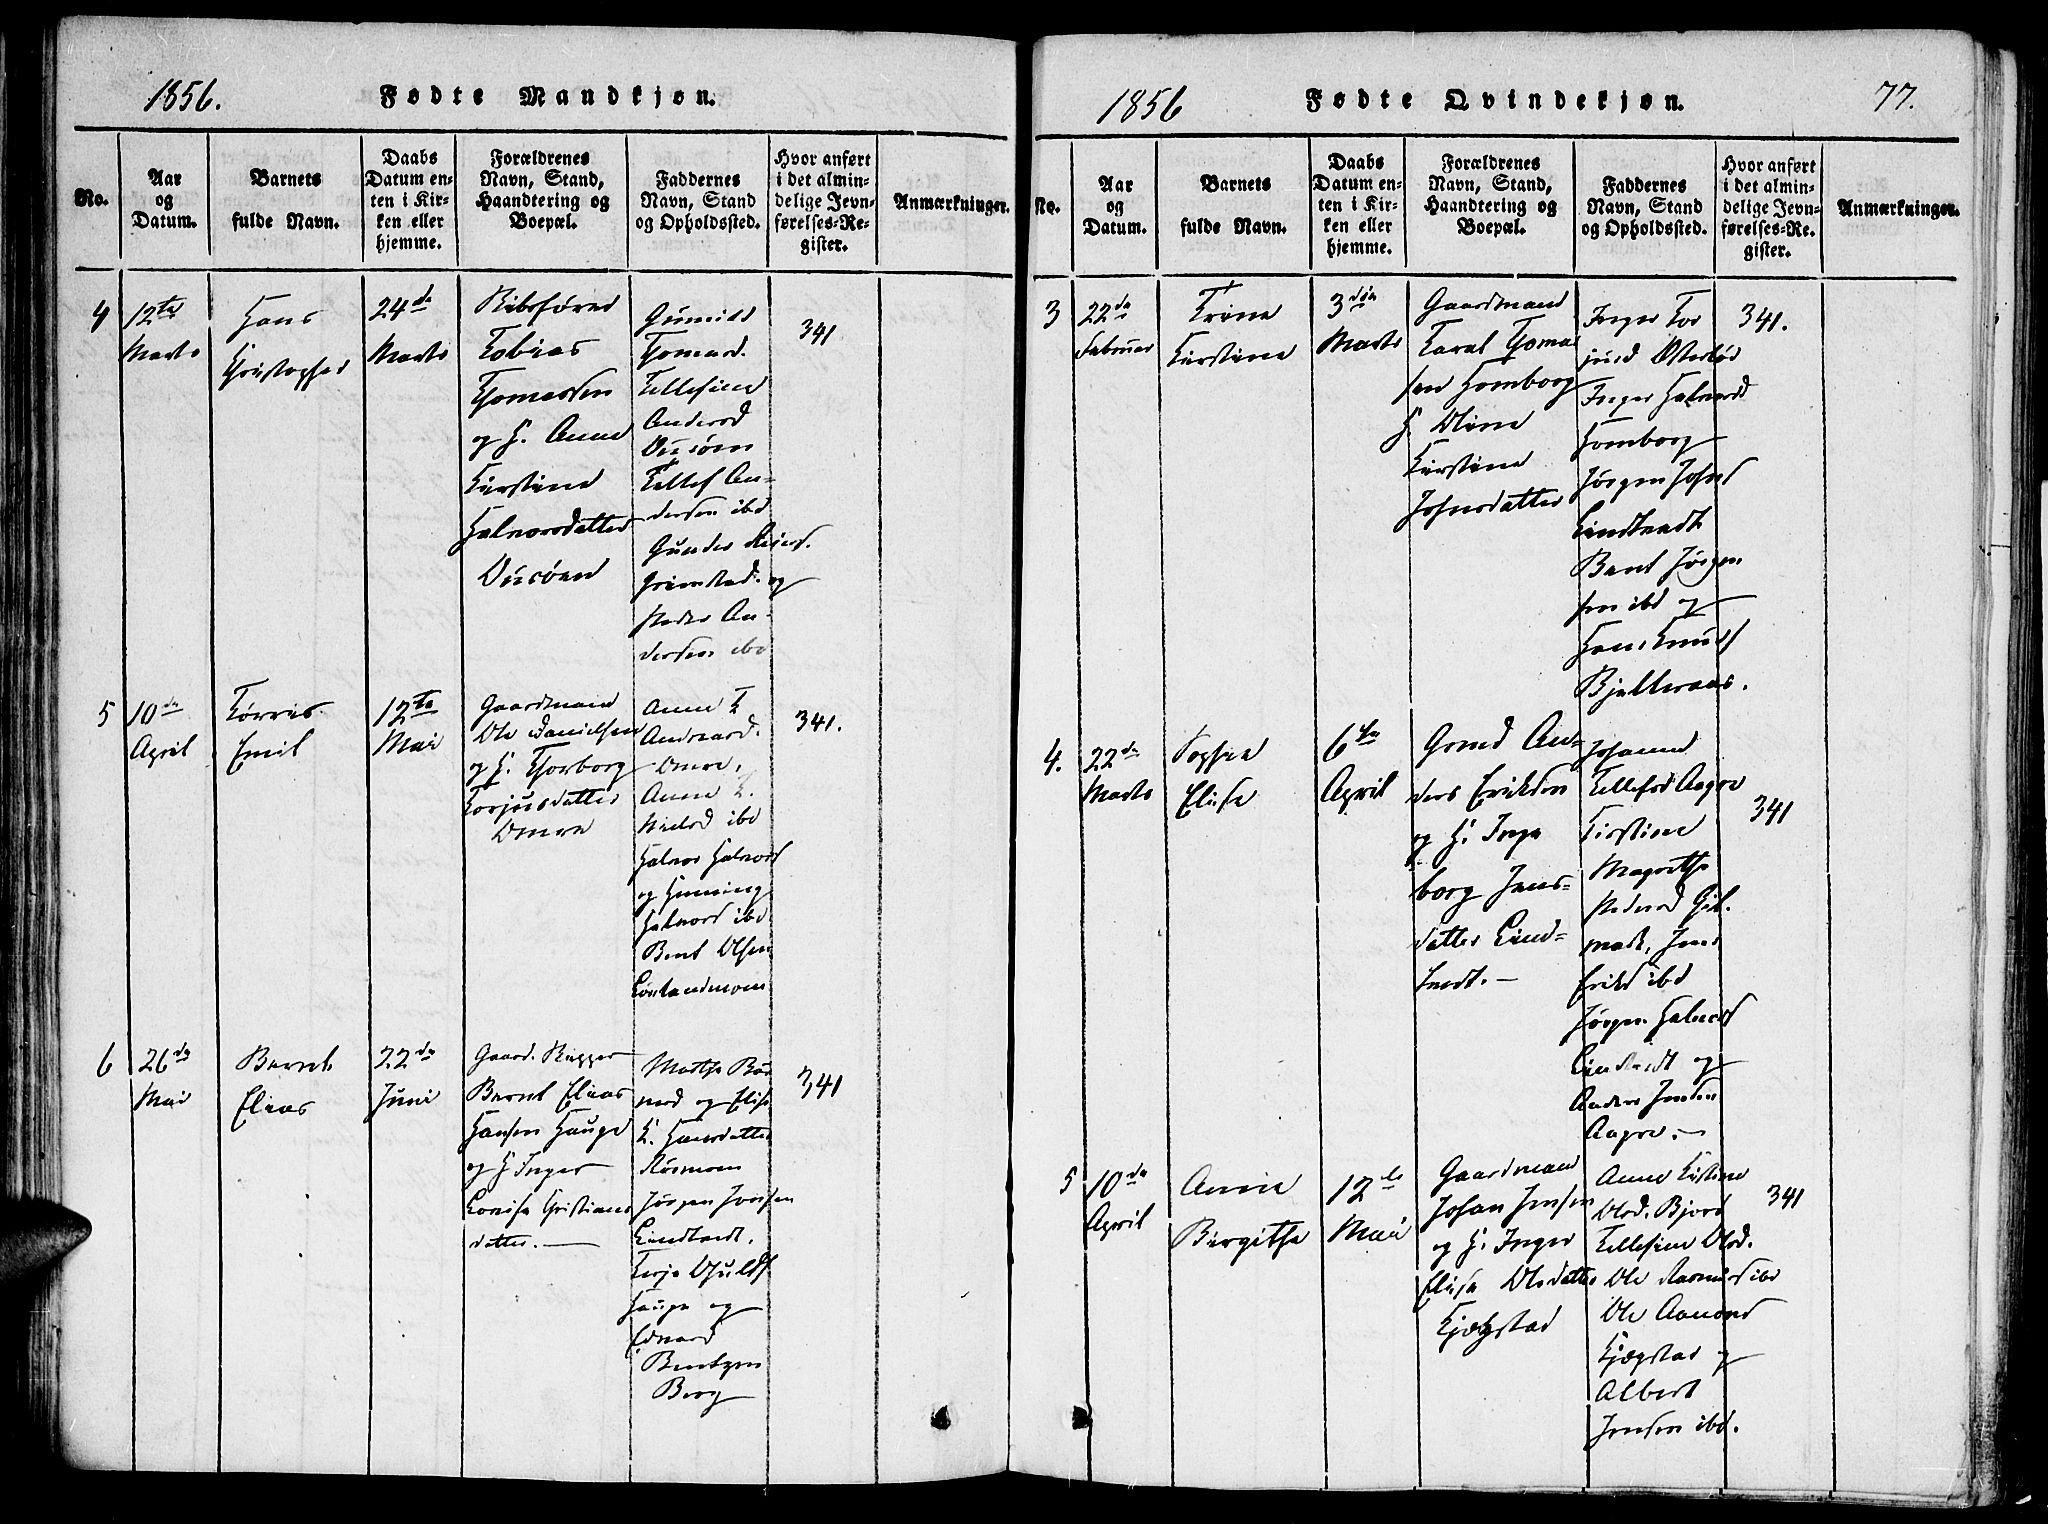 1856.
Fødte Mandkjøn.
No.
Aar
og
Datum.
Barnets
fulde Navn.
Daabs
Datum en-
ten i Kir-
ken eller
hjemme.
Forældrenes
Navn, Stand,
Haandtering og
Boepæl.
Faddernes
Navn, Stand
og Opholdssted.
Hvor anført
i det almin-
delige Jevn-
førelses-Re-
gister.
Anmærkninger.
4
12te
Marts
Hans
Christopher
24de
Marts
Tobias
Thomassen
og H. Anne
Kirstine
Halvorsdatter
Gunild
Thomasd.
Tellefine
Andersd
Tellef An-
dersen ibd
Gunder
Grimstad og
Peder An-
dersen ibd
341
5
10de
April
Tørres
Emil
12te
Mai
Gaardmand
Ole Danielsen
og H. Thorborg
Torjusdatter
Omre
Anne K
Andreasd.
Omre,
Anne K.
Nielsd ibd
Halvor Halvors
og Henning
Halvors ibd
Bent Olsen
341.
6
26de
Mai
Bernt
Elias
22de
Juni
Gaard.
Bernt Elias
Hansen Hauge
og H Inger
Lovise Christians
datter.
Marthe
og Elise
K. Hansdatter
Rosmoen
Jørgen Iversen
Lindtvedt.
Terje
Hauge og
Edvard
Bentzen
Berg
341
1856
Fødte Qvindekjøn.
77.
No.
Aar
og
Datum.
Barnets
fulde Navn.
Daabs
Datum en-
ten i Kir-
ken eller
hjemme.
Forældrenes
Navn, Stand,
Haandtering og
Boepæl.
Faddernes
Navn, Stand
og Opholdssted.
Hvor anført
i det almin-
delige Jevn-
førelses-Re-
gister.
Anmærkninger.
3
22de
Februar
Trine
Kirstine
3die
Marts
Gaardmand
Taral Thoma
sen Homborg
H. Oline
Kirstine
Johnsdatter
Inger Tor
jusd Østerhus
Inger Halvorsd
Homborg
Jørgen Johns
Lindtvedt
Bent Jørgen
sen ibd og
Hans Knuds
Bjelleraas.
341.
4.
22de
Marts
Sophie
Elise
6te
April
Grmd An-
ders Eriksen
og H. Inge
borg Jens-
datter Lind-
tvedt.
Johanne
Tellefsd Aagre
Kirstine
Magrethe
Pedersd
Jens
Eriks ibd
Jørgen Halvors
Lindtvedt og
Anders Jensen
Aagre.
341
5
10de
April
Anne
Birgithe
12te
Mai
Gaardmand
Johan Jensen
og H. Inger
Elise Olsdatter
Kjægstad
Anne Kirstine
Olsd.
Tellefine Olsd.
Ole Rasmus ibd
Ole Aamonds
Kjægstad og
Albert
Jensen ibd.
341